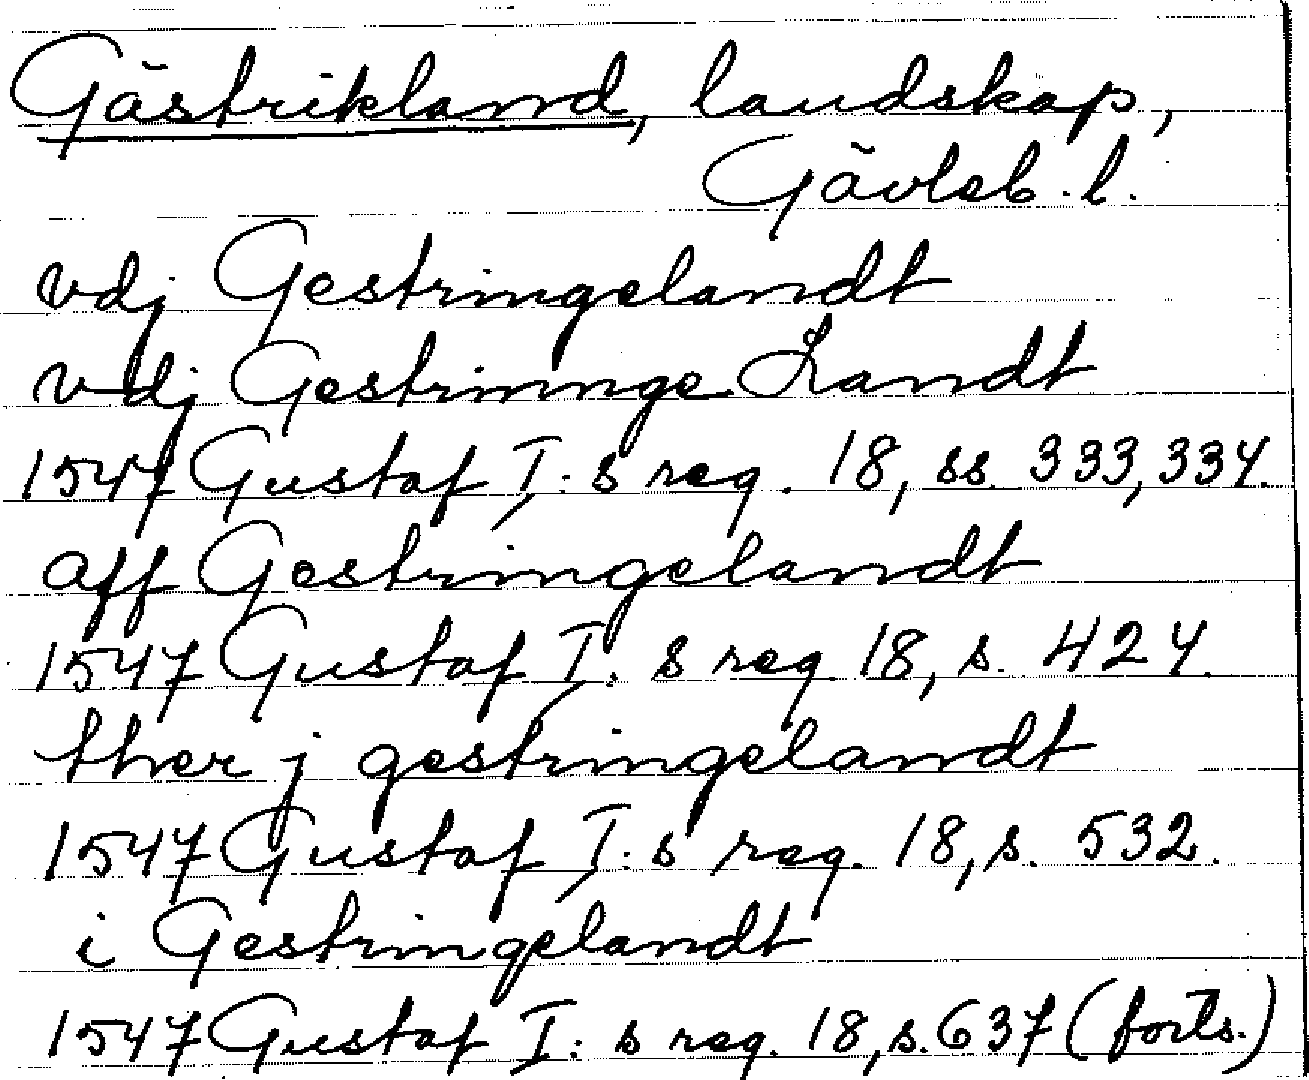 Gästrikland, landskap,
Gävleb. l.
vdj Gestringelandt
vdj Gestrinnge Landt
1547 Gustaf I:s reg. 18, ss. 333, 334.
aff Gestringelandt
1547 Gustaf I:s reg. 18, s. 424.
ther j gestringelandt
1547 Gustaf I:s reg. 18, s. 532.
i Gestringelandt
1547 Gustaf I:s reg. 18, s. 637 (forts.)